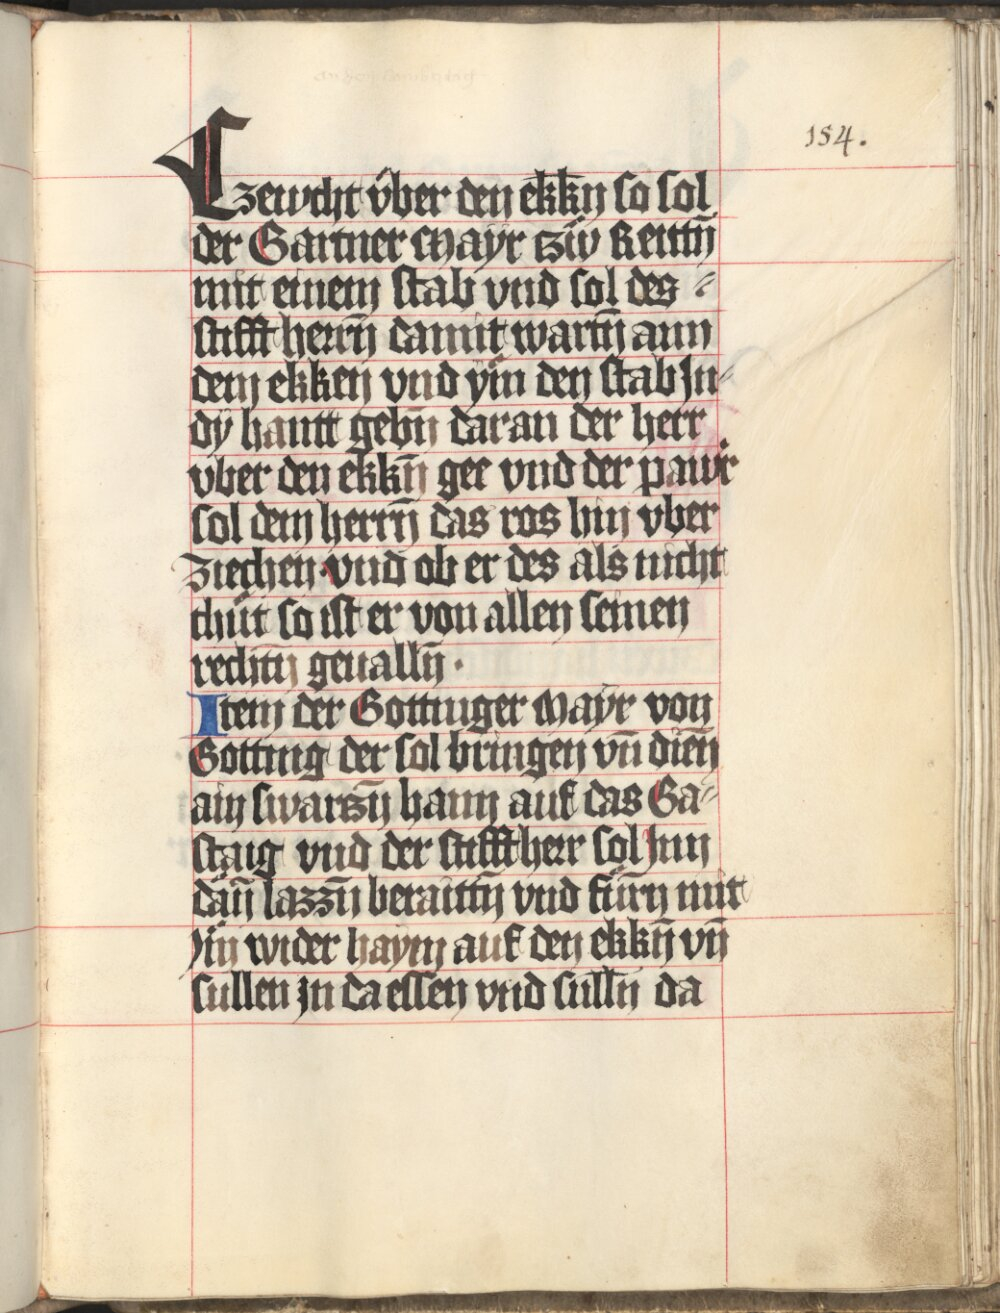 154.
Czewcht vber den ekkn̄ so sol
der Gartner Mayr tzw Reittn̄
mit einem stab vnd sol des
stifft herrn̄ damit wartn̄ ann
dem ekken vnd ym̄ den stab Jn
dy hantt gebn̄ daran der herr
vber den ekkn̄ gee vnd der pawr
sol dem herrn̄ das ros hin vber
ziechen · vnd ob er des als nicht
thút so ist er von allen seinen
rechtn̄ geualln̄ ·
Item der Gottinger Mayr von
Gotting der sol bringen vn̄ dien̄
ain swartzn̄ hann auf das Ga
staig vnd der stifftherr sol Jnn
dan̄ lazzn̄ beraittn̄ vnd fürn̄ mit
Jm̄ wider haym auf den ekkn̄ vn̄
sullen Jn da essen vnd sulln̄ da